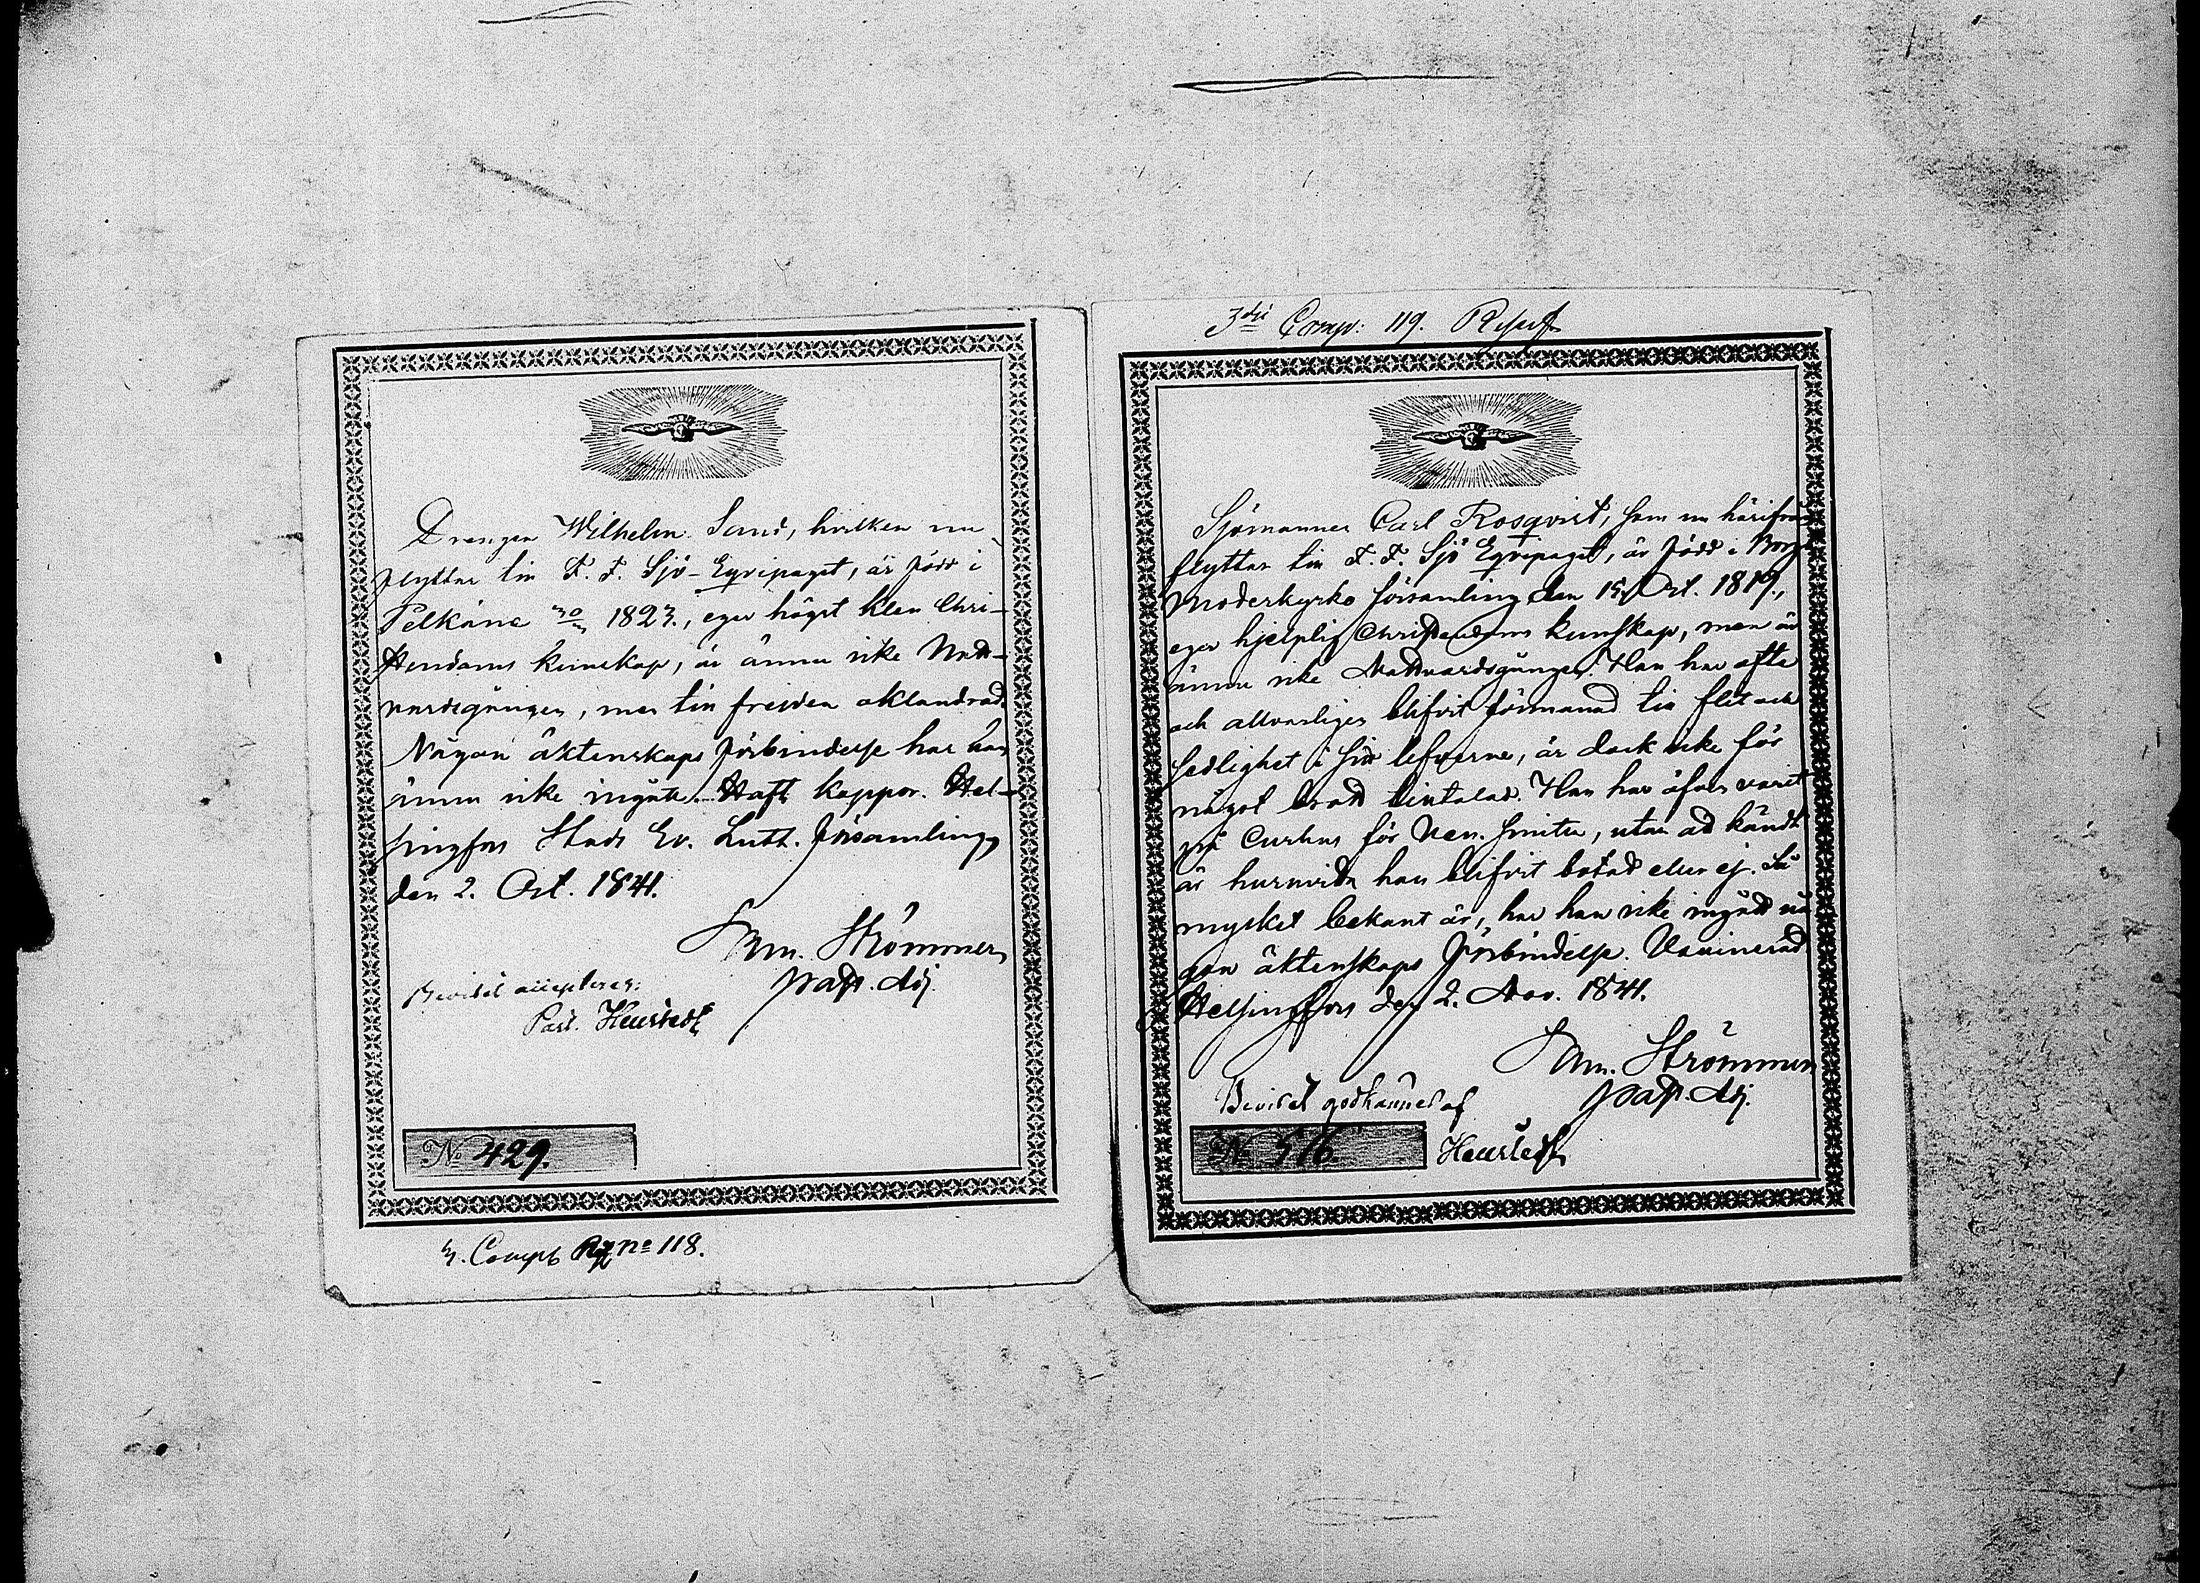 Drengen Wilhelm Sand, hvilken nu
flyttar till F. F. Sjö-Eqvipaget, är född i
Pelkäne 1823., eger högst klen Chri-
stendoms kunskap, är ännu icke Natt-
vardsgången, men till frejden oklandrad.
Någon äktenskaps förbindelse har han
ännu icke ingått. Haft koppor. Hel-
singfors Stads Ev. Luth. församling
den 2. Oct. 1841.
Sam. Strömmer
past. Adj.
Beviset accepteras:
Past. Heurstedt
No 429.
3. Comp No 118.
3die Comp: 119.
Sjömannen Carl Rosqvist, som nu härifrån
flyttar till F. F. Sjö Eqvipaget, är född i Borgå
moderkyrko församling den 15. Oct. 1819.,
eger hjelplig Christendoms kunskap, men är
ännu icke Nattvardsgången. Han har ofta
och allvarligen blifvit förmanad till flit och
sedlighet i sin lefverne, är dock icke för
något brott tilltalad. Han har äfven varit
på Curhus för Ven. smitta, utan att kändt
är huruvida han blifvit botad eller ej. Så
mycket bekant är, har han icke ingått nå-
gon äktenskaps förbindelse. Vaccinerad
Helsingfors den 2. Nov. 1841.
Sam. Strömmer
past. Adj.
Beviset godkännes af
Heurstedt
No 516.